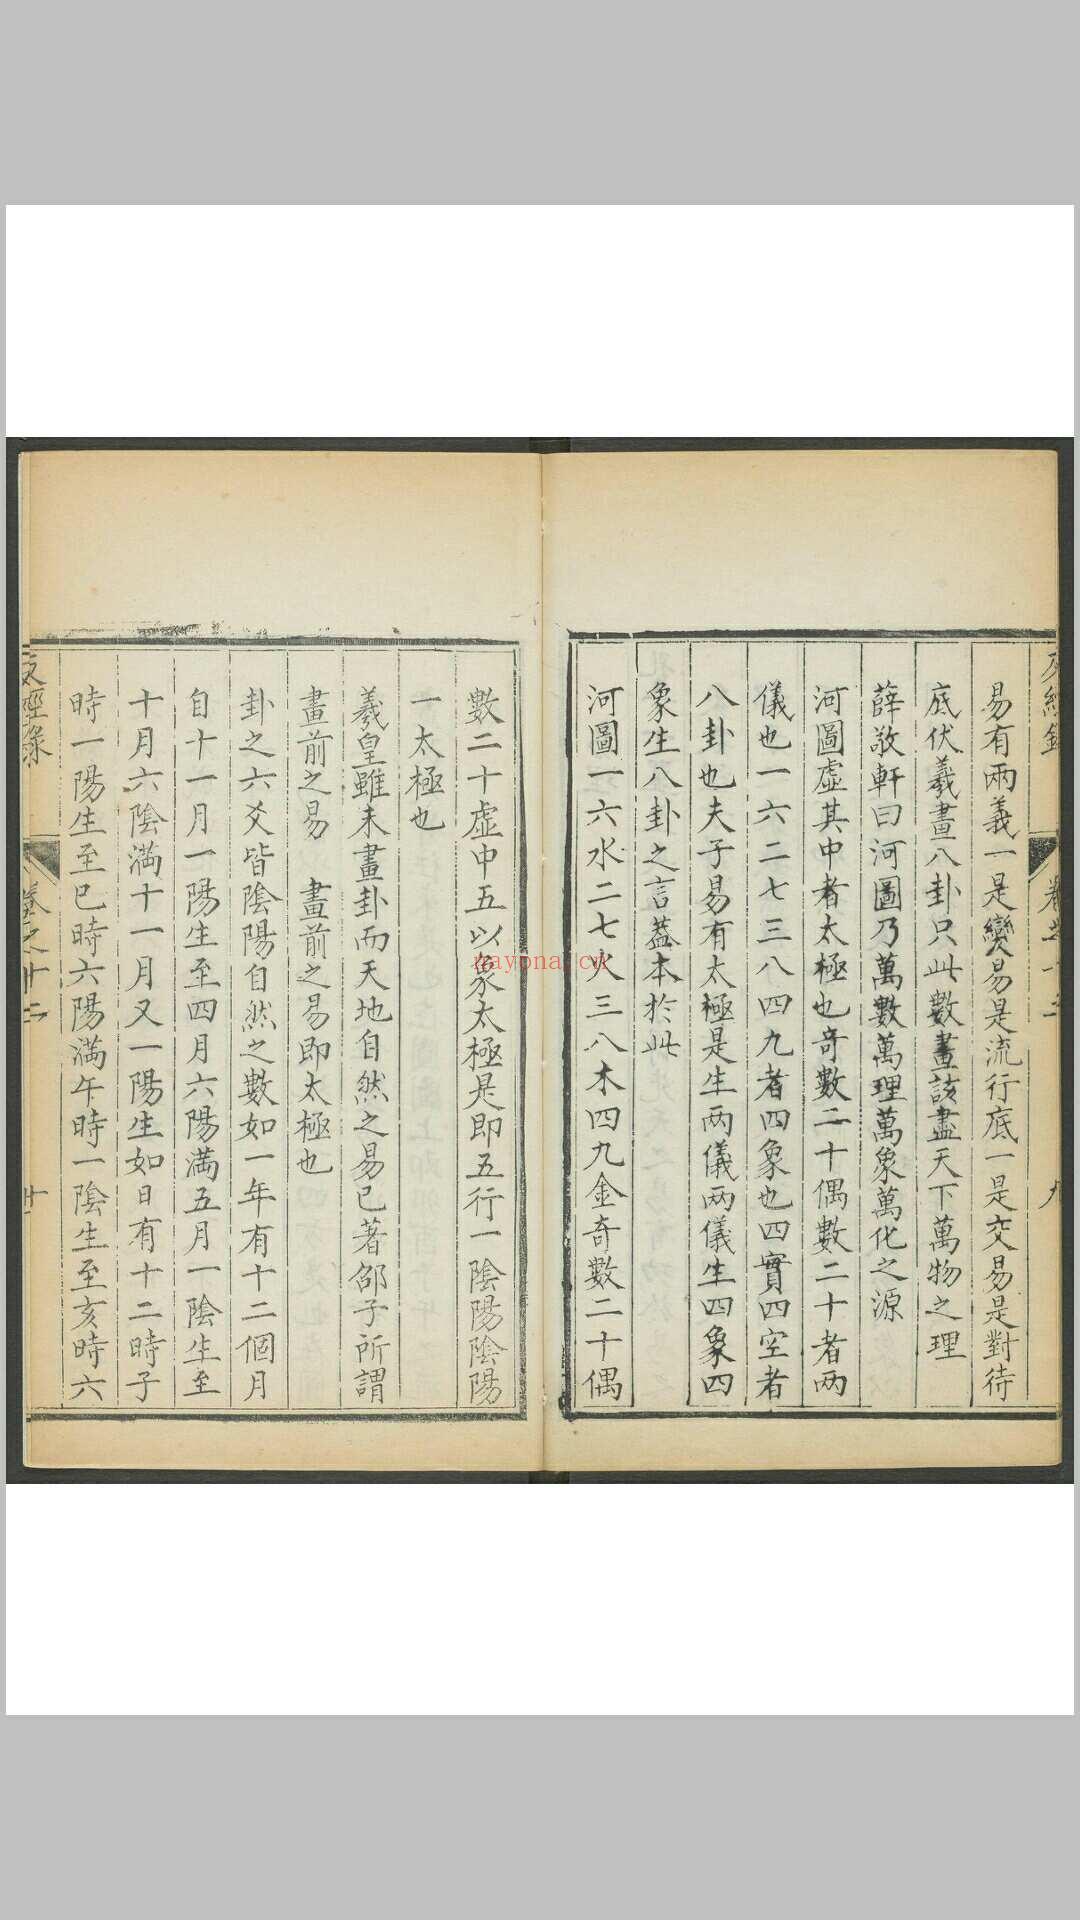 易有兩義一是變易是流行底一是交易是對待
底伏羲畫八卦只此數畫該盡天下萬物之理
薛敬軒曰河圖乃萬數萬理萬象萬化之源
河圖虛其中者太極也奇數二十偶數二十者两
儀也一六二七三八四九者四象也四實四空者
八卦也夫子易有太極是生两儀两儀生四象四
象生八卦之言蓋本於此
河圖一六水二七火三八木四九金奇數二十偶
數二十虛中五以象太極是即五行一陰陽陰陽
一太極也
羲皇雖未畫卦而天地自然之易已著邵子所謂
畫前之易 畫前之易即太極也
卦之六爻皆陰陽自然之數如一年有十二個月
自十一月一陽生至四月六陽満五月一陰生至
十月六陰満十一月又一陽生如日有十二時子
時一陽生至巳時六陽満午時一陰生至亥時六
卷之十二
十
nayona.cn